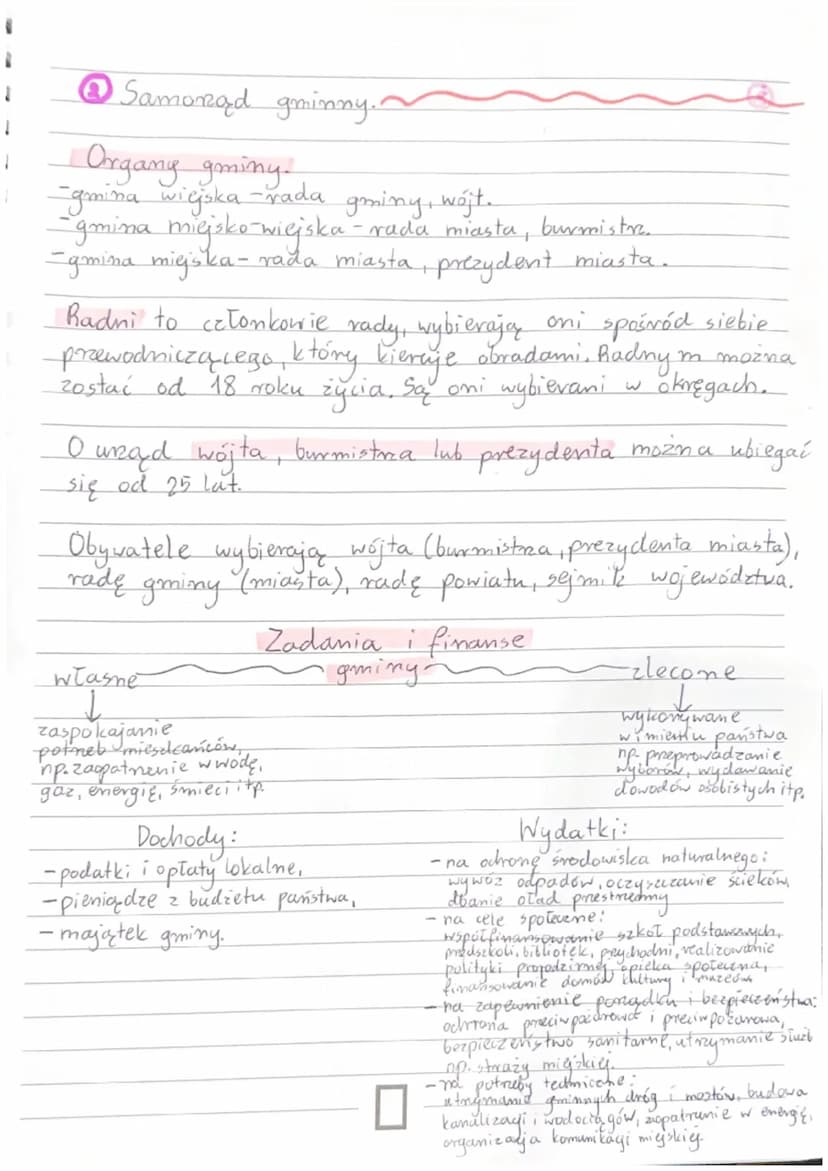 2 Samorząd gminny.
Organy gminy.
-gmina wiejska - rada gminy, wójt.
-gmina miejsko-wiejska - rada miasta, burmistrz.
-gmina miejska - rada miasta, prezydent miasta.
Radni to członkowie rady, wybierają oni spośród siebie
przewodniczącego, który kieruje obradami. Radnym można
zostać od 18 roku życia. Są oni wybierani w okręgach.
O urząd wójta, burmistrza lub prezydenta można ubiegać
się od 25 lat.
Obywatele wybierają wójta (burmistrza, prezydenta miasta),
radę gminy (miasta), radę powiatu, sejmik województwa.
Zadania i finanse
gminy
własne
zlecone
zaspokajanie
potrzeb mieszkańców,
np. zaopatrzenie w wodę,
gaz, energię, śmieci itp.
wykonywane
w imieniu państwa
np. przeprowadzanie
wyborów, wydawanie
dowodów osobistych itp.
Dochody:
- podatki i opłaty lokalne,
- pieniądze z budżetu państwa,
- majątek gminy.
Wydatki:
- na ochronę środowiska naturalnego:
wywóz odpadów, oczyszczanie ścieków,
dbanie o ład przestrzenny
- na cele społeczne:
współfinansowanie szkół podstawowych,
przedszkoli, bibliotek, przychodni, realizowanie
polityki prorodzinnej, opieka społeczna,
finansowanie domów kultury i muzeów
- na zapewnienie porządku i bezpieczeństwa:
ochrona i przeciwpożarowa,
bezpieczeństwo sanitarne, utrzymanie służb
np. straży miejskiej.
- na potrzeby techniczne:
utrzymanie gminnych dróg i mostów, budowa
kanalizacji i wodociągów, zaopatrzenie w energię,
organizacja komunikacji miejskiej.